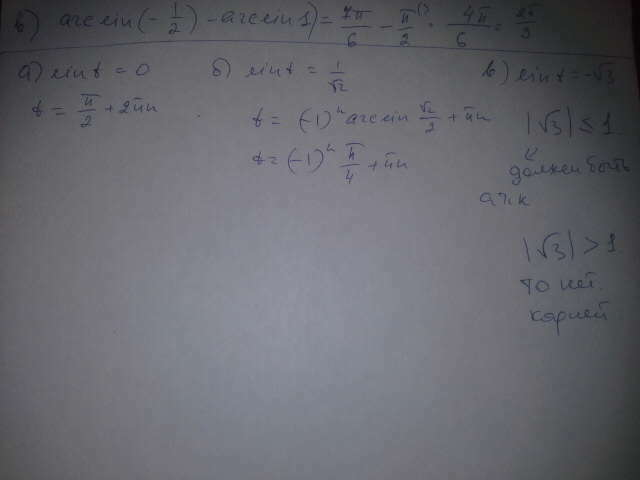 в) arcsin(-1/2) - arcsin 1) = 7π/6 - π/2 = 4π/6 = 2π/3
а) sin t = 0
t = π/2 + 2πn
б) sin t = 1/√2
t = (-1)ⁿ arcsin √2/2 + πn
t = (-1)ⁿ π/4 + πn
в) sin t = -√3
|√3| ≤ 1
должен быть
а т.к
|√3| > 1
то нет.
корней